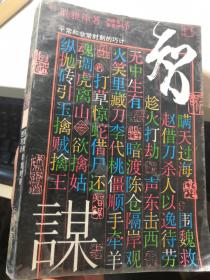 平常和非常时刻的巧计
智
謀
瞒天过海围魏救
赵借刀杀人以逸待劳
趁火打劫声东击西
无中生有暗渡陈仓隔岸观
火笑里藏刀李代桃僵顺手牵羊
打草惊蛇借尸还
魂调虎离山欲擒故
纵抛砖引玉擒贼擒王